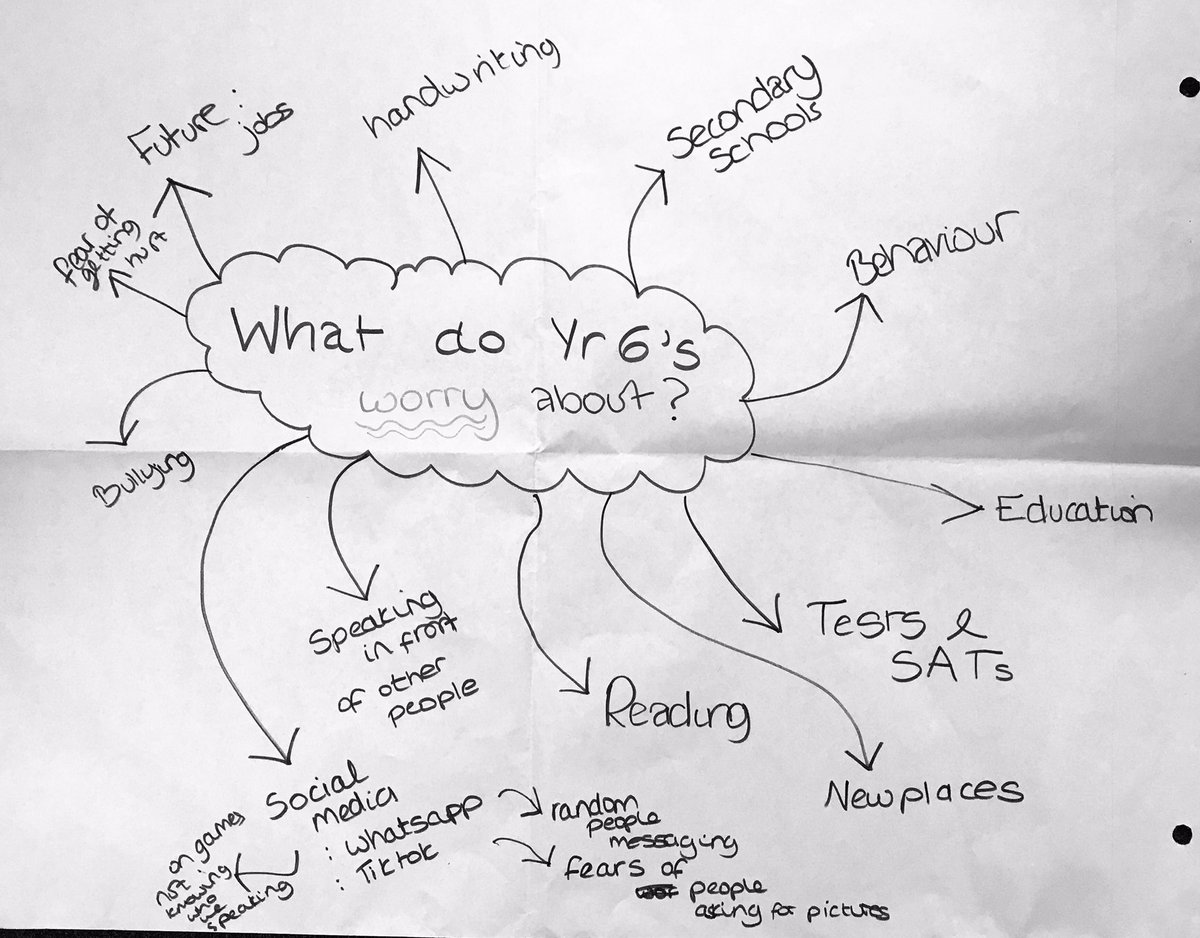 Future :
jobs
handwriting
Secondary
Schools
fear of
getting
hurt
Behaviour
What do Yr 6's
worry about?
Bullying
Education
Speaking
in front
of other
people
Tests &
SATs
Reading
New places
Social
media
: Whatsapp
: Tiktok
random
people
messaging
fears of
people
asking for pictures
on games
not
knowing
who
we
speaking